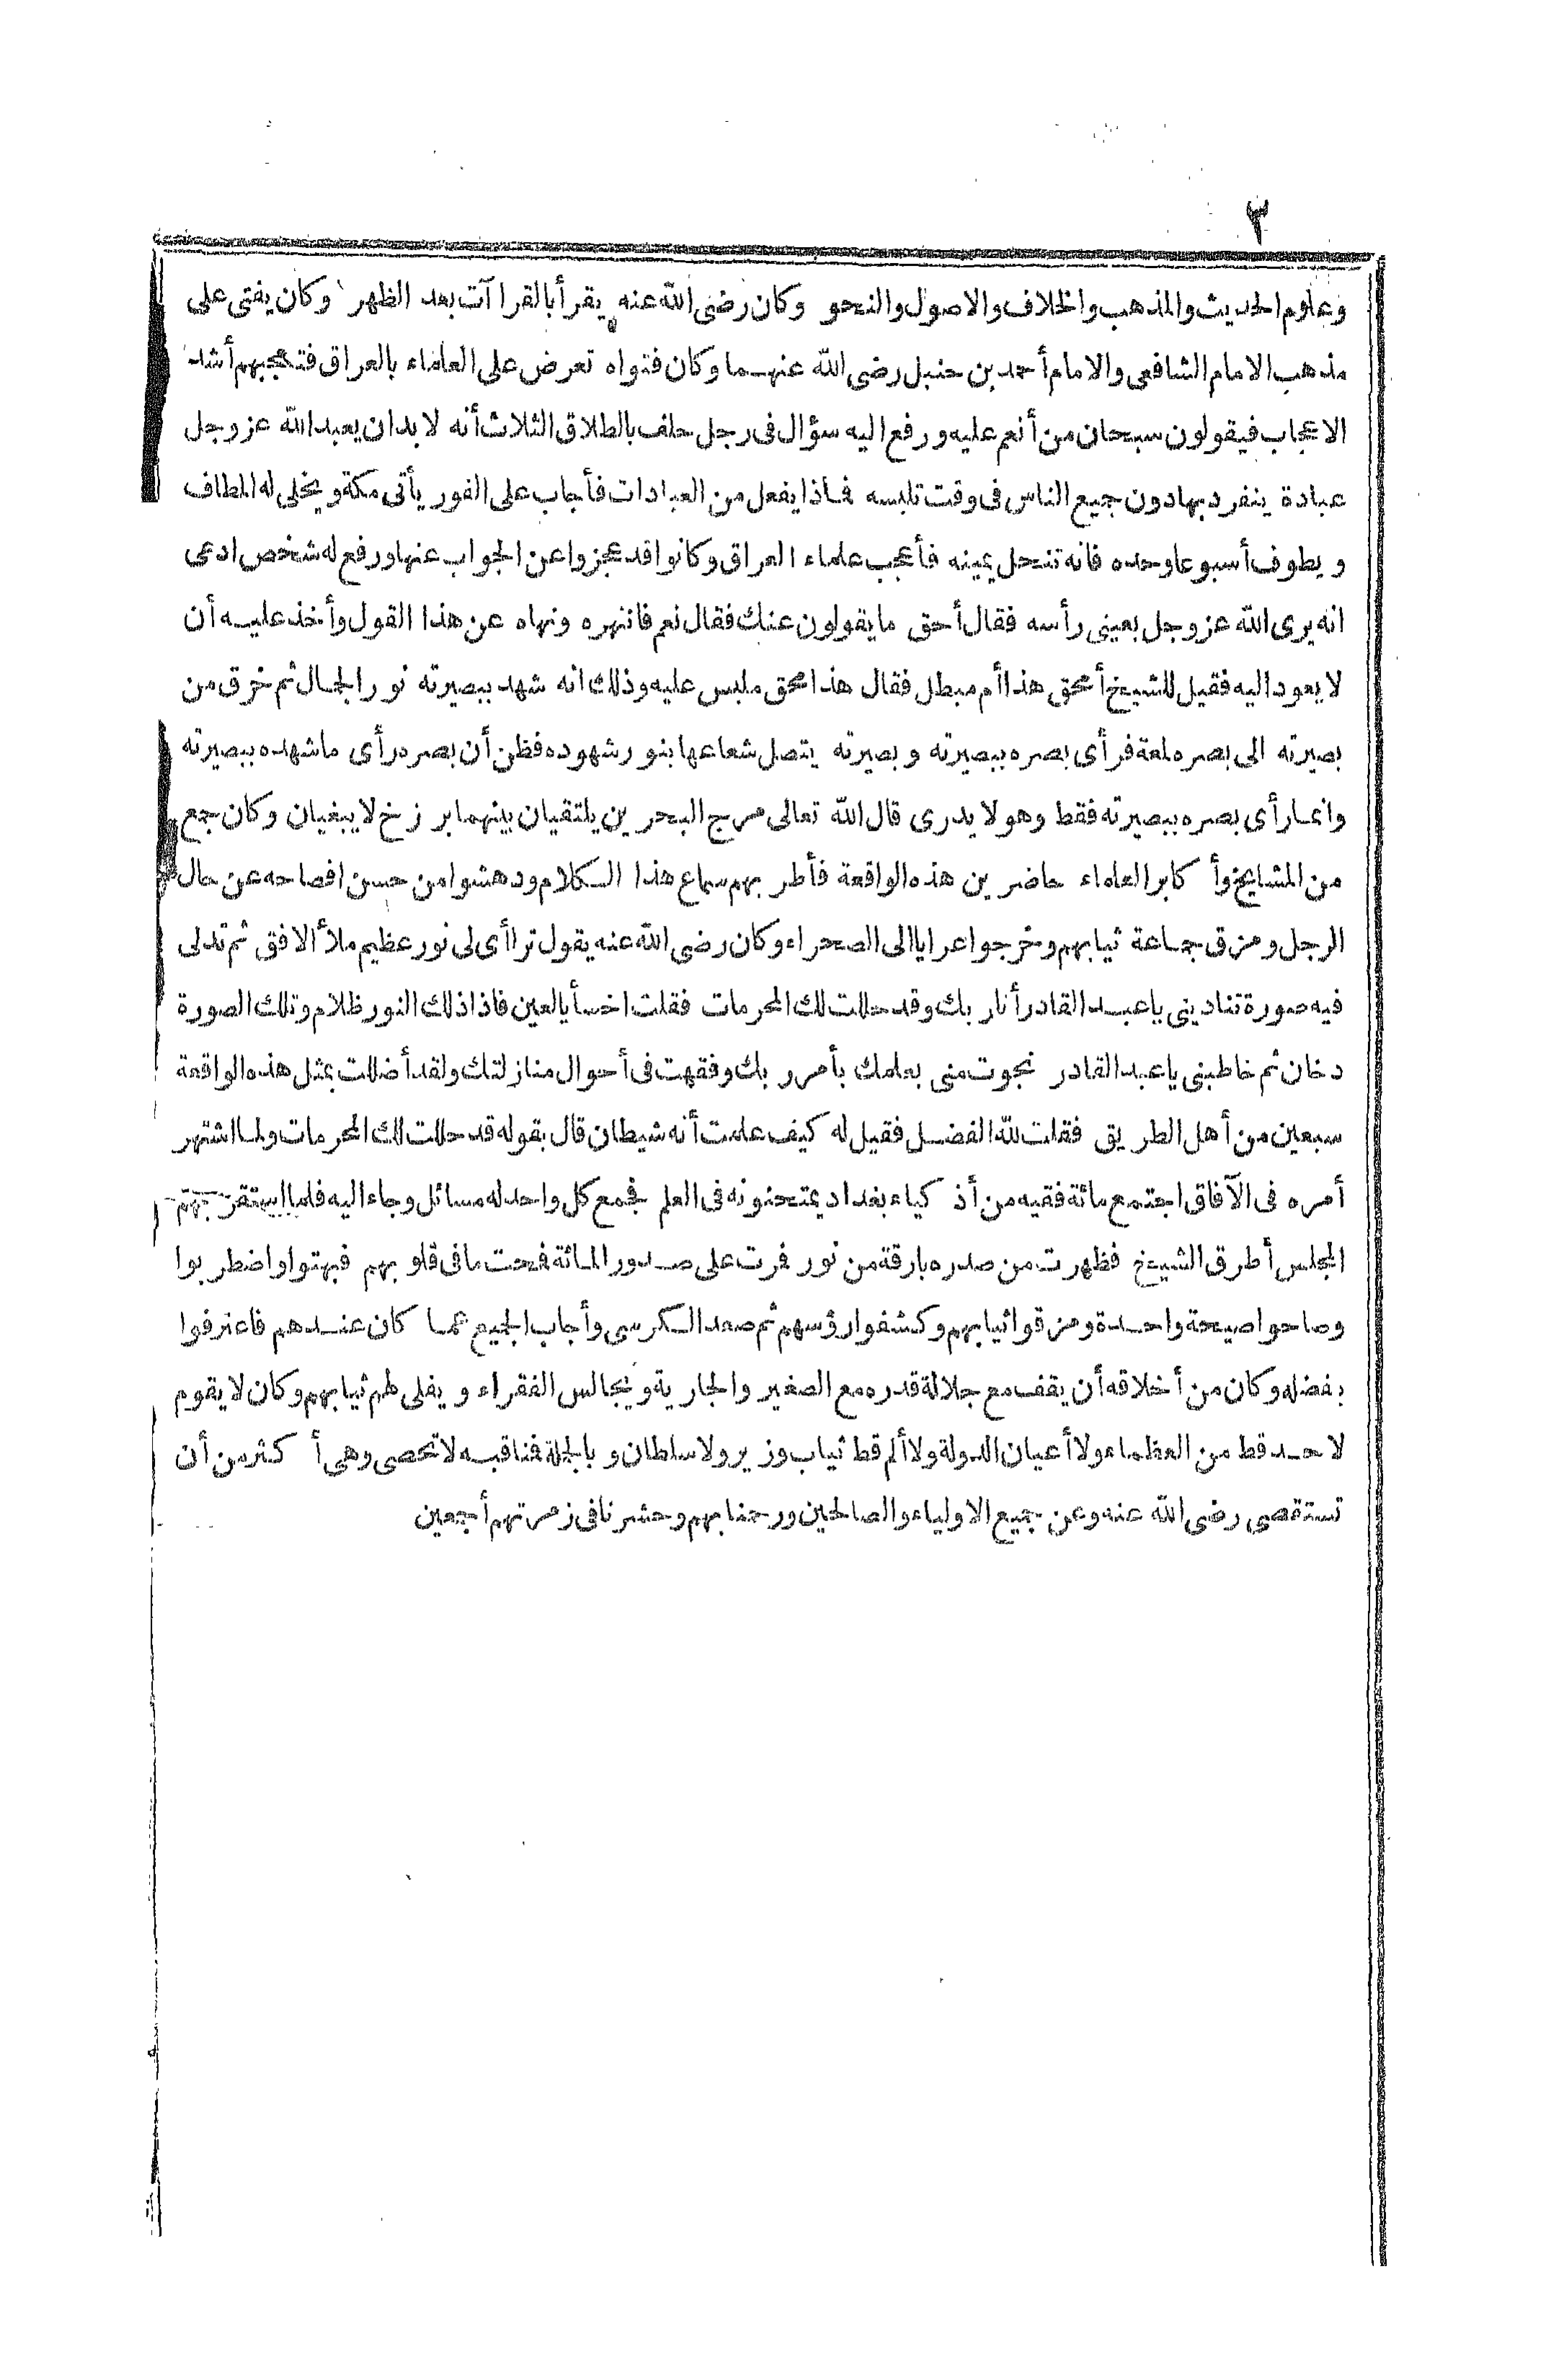 ٣
وعلوم الحديث والمذهب والخلاف والاصول والنحو وكان رضى الله عنه يقرأ بالقرا آت بعد الظهر وكان يفتى على
مذهب الامام الشافعى والامام أحمد بن حنبل رضى الله عنهما وكان فتواه تعرض على العلماء بالعراق فتعجبهم أشد
الاعجاب فيقولون سبحان من أنعم عليه ورفع اليه سؤال فى رجل حلف بالطلاق الثلاث أنه لابد ان يعبد الله عز وجل
عبادة ينفرد بها دون جميع الناس فى وقت تلبسه فماذا يفعل من العبادات فأجاب على الفور يأتى مكة ويخلى له المطاف
ويطوف أسبوعا وحده فانه تنحل يمينه فأعجب علماء العراق وكانوا قد عجزوا عن الجواب عنها ورفع له شخص ادعى
انه يرى الله عز وجل بعينى رأسه فقال أحق ما يقولون عنك فقال نعم فانتهره ونهاه عن هذا القول وأخذ عليه أن
لا يعود اليه فقيل للشيخ أمحق هذا أم مبطل فقال هذا محق ملبس عليه وذلك انه شهد ببصيرته نور الجمال ثم خرق من
بصيرته الى بصره لمعة فرأى بصره ببصيرته وبصيرته يتصل شعاعها بنور شهوده فظن أن بصره رأى ما شهده ببصيرته
وانما رأى بصره ببصيرته فقط وهو لا يدرى قال الله تعالى مرج البحرين يلتقيان بينهما برزخ لا يبغيان وكان جمع
من المشايخ وأكابر العلماء حاضرين هذه الواقعة فأطربهم سماع هذا الكلام ودهشوا من حسن افصاحه عن حال
الرجل ومزق جماعة ثيابهم وخرجوا عرايا الى الصحراء وكان رضى الله عنه يقول تراأى لى نور عظيم ملأ الافق ثم تدلى
فيه صورة تنادينى يا عبد القادر أنا ربك وقد حللت لك المحرمات فقلت اخسأ يا لعين فاذا ذلك النور ظلام وتلك الصورة
دخان ثم خاطبنى يا عبد القادر نجوت منى بعلمك بأمر ربك وفقهت فى أحوال منازلتك ولقد أضللت بمثل هذه الواقعة
سبعين من أهل الطريق فقلت لله الفضل فقيل له كيف علمت أنه شيطان قال بقوله قد حللت لك المحرمات ولما اشتهر
أمره فى الآفاق اجتمع مائة فقيه من أذكياء بغداد يمتحنونه فى العلم فجمع كل واحد له مسائل وجاء اليه فلما استقر بهم
المجلس أطرق الشيخ فظهرت من صدره بارقة من نور فرت على صدور المائة فمحت ما فى قلوبهم فبهتوا واضطربوا
وصاحوا صيحة واحدة ومزقوا ثيابهم وكشفوا رؤسهم ثم صعد الكرسى وأجاب الجميع عما كان عندهم فاعترفوا
بفضله وكان من أخلاقه أن يقف مع جلالة قدره مع الصغير والجارية ويجالس الفقراء ويفلى لهم ثيابهم وكان لا يقوم
لاحد قط من العظماء ولا أعيان الدولة ولا ألم قط ثياب وزير ولا سلطان وبالجملة فمناقبه لا تحصى وهى أكثر من أن
تستقصى رضى الله عنه وعن جميع الاولياء والصالحين ورحمنا بهم وحشرنا فى زمرتهم أجمعين